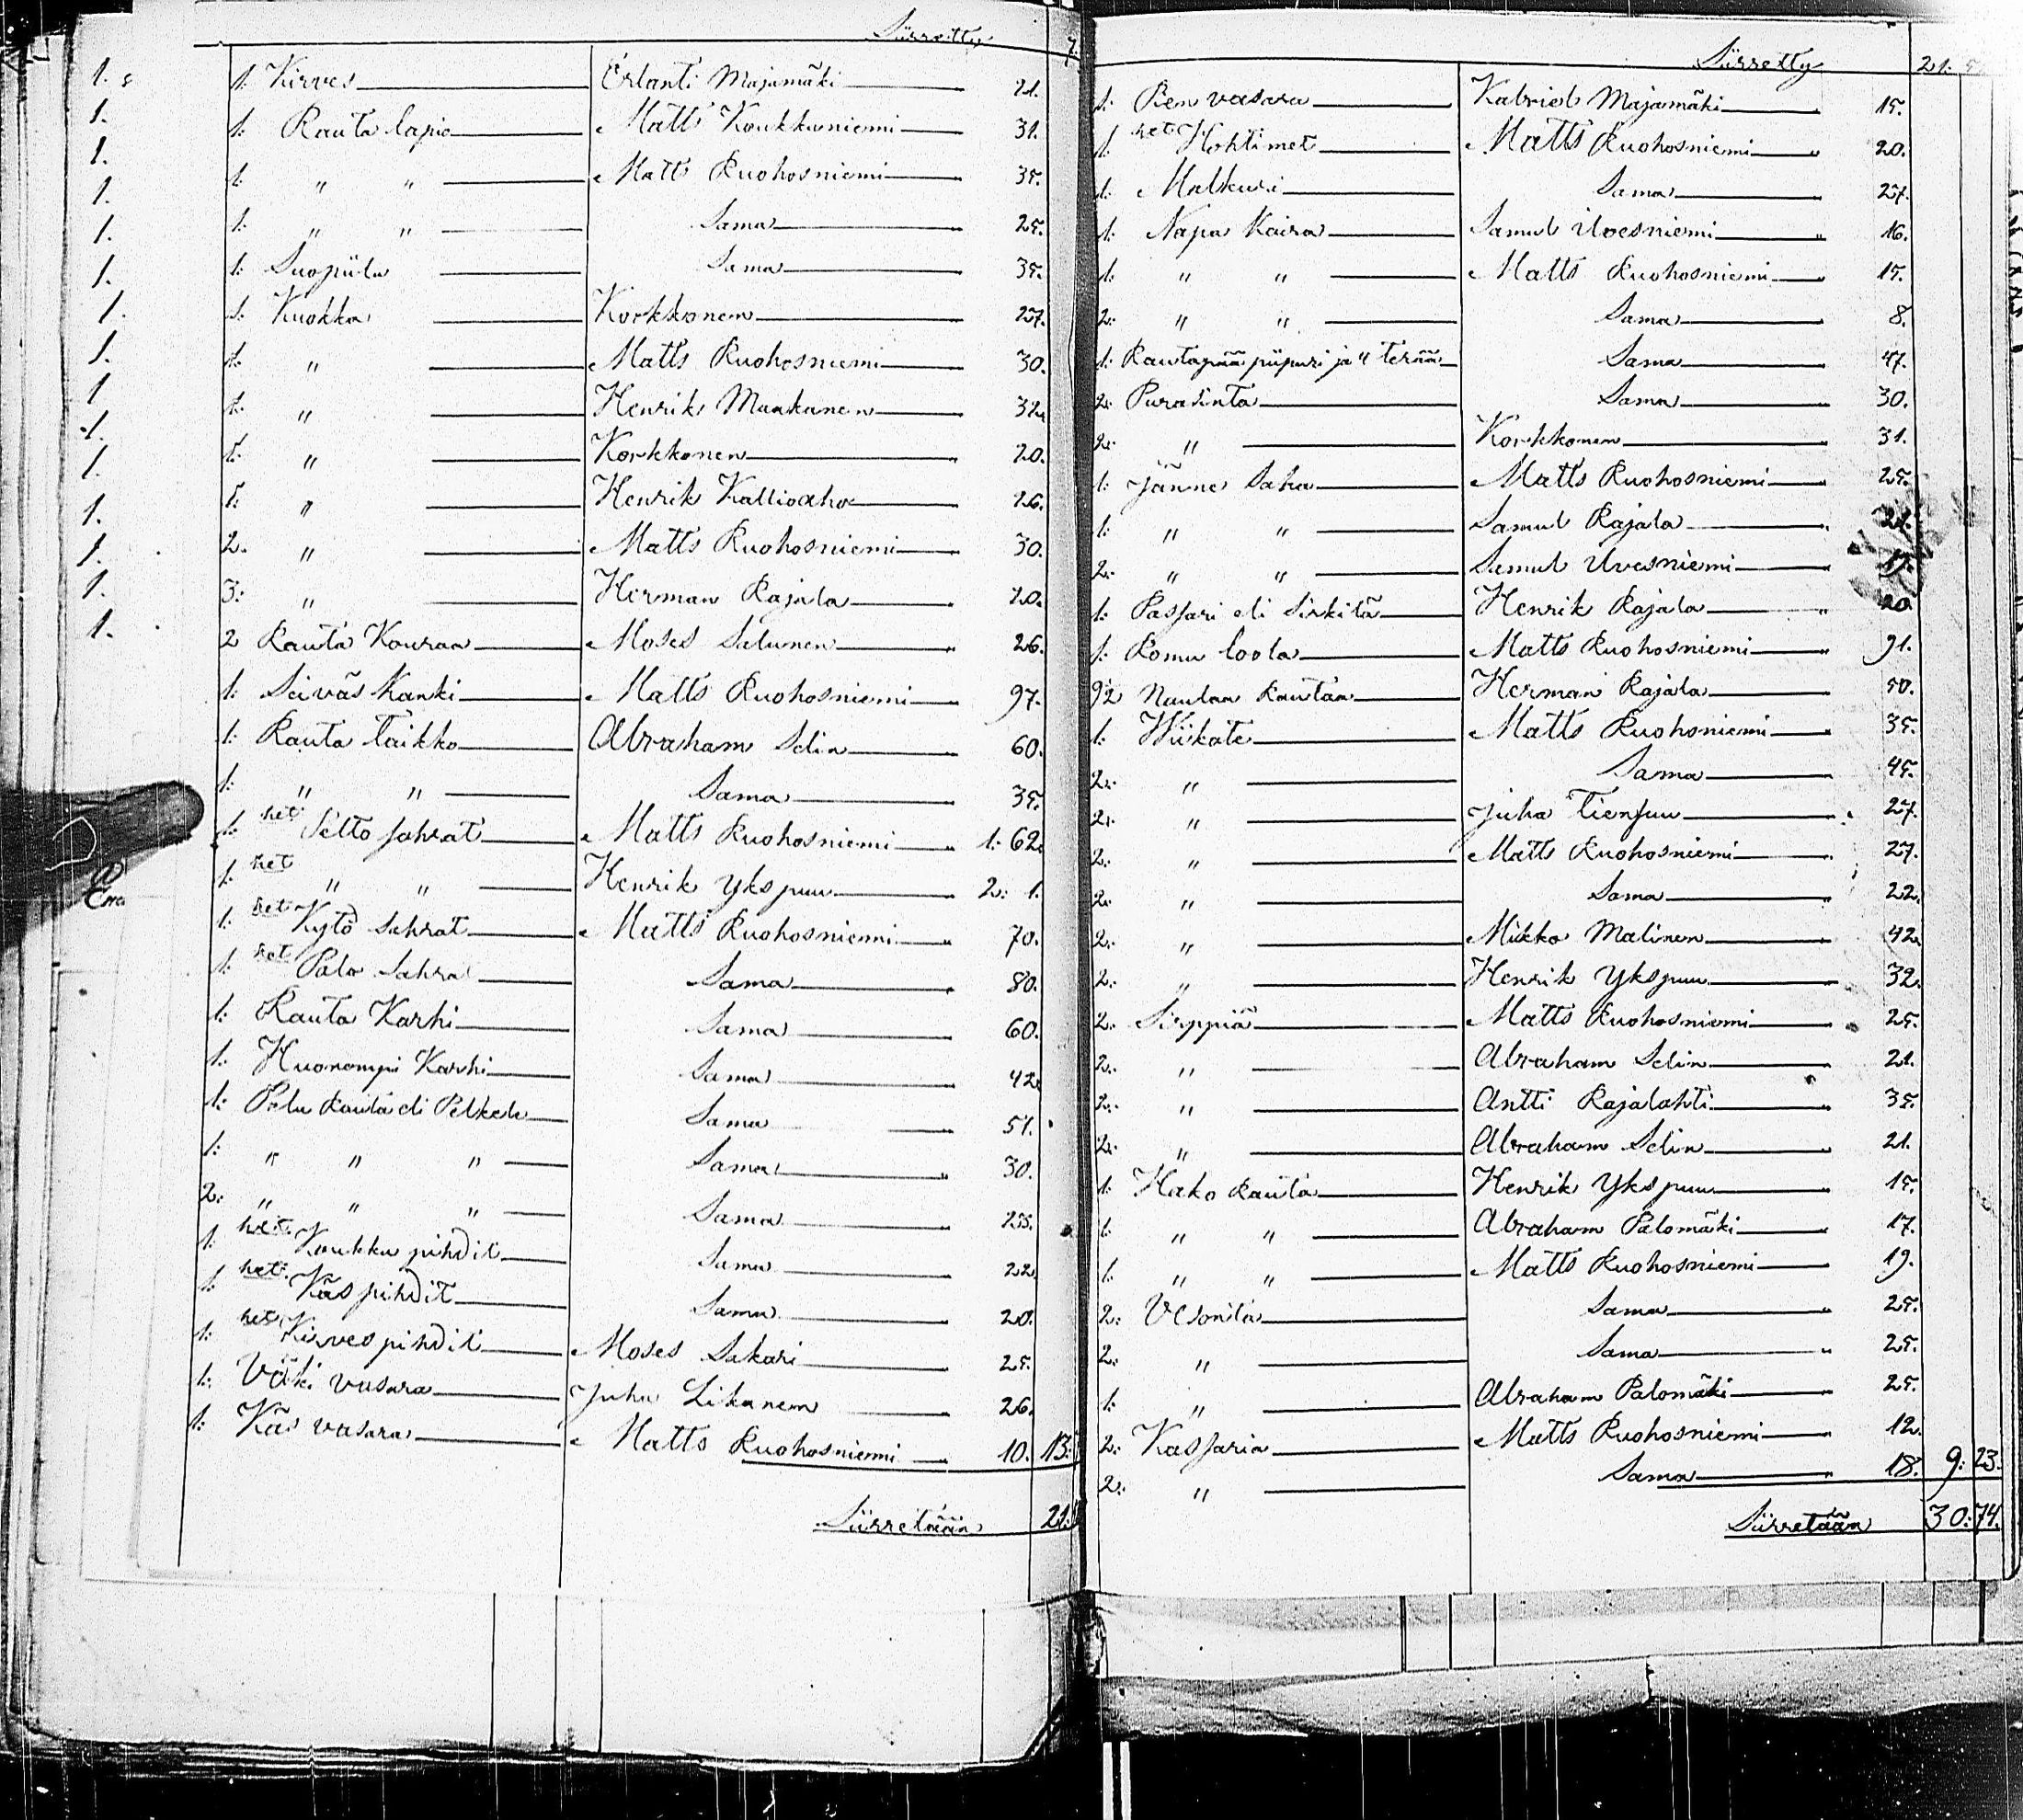 Siirretty 7.
1: Kirves Erlanti Majamäki 21.
1: Rauta lapio Matts Koukkuniemi 31.
1: " " Matts Ruohosniemi 35.
1: " " Sama 25.
1: Suopiilu Sama 35.
1: Kuokka Korkkonen 27.
1: " Matts Ruohosniemi 30.
1: " Henrik Munkanen 32.
1: " Korkkonen 20.
1: " Henrik Kallioaho 26.
2. " Matts Ruohosniemi 30.
3: " Herman Rajala 20.
2 Rauta Kouraa Moses Salunen 26.
1: Seiväs Kanki Matts Ruohosniemi 97.
1: Rauta taikko Abraham Selin 60.
1: " " Sama 35.
1: het Selto sahrat Matts Ruohosniemi 1: 62.
1: het " " Henrik Ykspuu 2: 1.
1: het Kytö sahrat Matts Ruohosniemi 70.
1: het Palo sahra Sama 80.
1: Rauta Karhi Sama 60.
1: Huonompi Karhi Sama 42.
1: Palu Rauta eli Pelkele Sama 51.
1: " " " Sama 30.
2: " " " Sama 25.
1: het Koukku pihdit Sama 22.
1: het Käs pihdit Sama 20.
1: het Kirves pihdit Moses Sakari 25.
1: Väki vasara Juha Likanen 26.
1: Käs vasara Matts Ruohosniemi 10. 13:
Siirretään 21:
Siirretty 21:
1: Pien vasara Kabriel Majamäki 15.
1: het Hohtimet Matts Ruohosniemi 20.
1: Malkuri Sama 27.
1: Napa Kaira Samul Ilvesniemi 16.
1: " " Matts Ruohosniemi 15.
2: " " Sama 8.
1: Rautapää piipuri ja 4 terää Sama 47.
2: Purasinta Sama 30.
2: " Korkkonen 31.
1: Jänne Saha Matts Ruohosniemi 25.
1: " " Samul Rajala 21.
2: " " Samul Ilvesniemi 17.
1: Passari eli Sirkilä Henrik Rajala 20
1: Romu loola Matts Ruohosniemi 91.
92 Naulan Rautaa Herman Rajala 50.
1: Wiikate Matts Ruohosniemi 35.
2: " Sama 45.
2: " Juha Tiensuu 27.
2: " Matts Ruohosniemi 27.
2: " Sama 22.
2: " Mikko Malinen 42.
2: " Henrik Ykspuu 32.
2: Sirppiä Matts Ruohosniemi 25.
2: " Abraham Selin 21.
2: " Antti Rajalahti 35.
2: " Abraham Selin 21.
1: Hako Rauta Henrik Ykspuu 15.
1: " " Abraham Palomäki 17.
1: " " Matts Ruohosniemi 19.
2: Vesonita Sama 25.
2: " Sama 25.
1: " Abraham Palomäki 25.
2: Kassaria Matts Ruohosniemi 12.
2: " Sama 18. 9: 23.
Siirretään 30: 74.